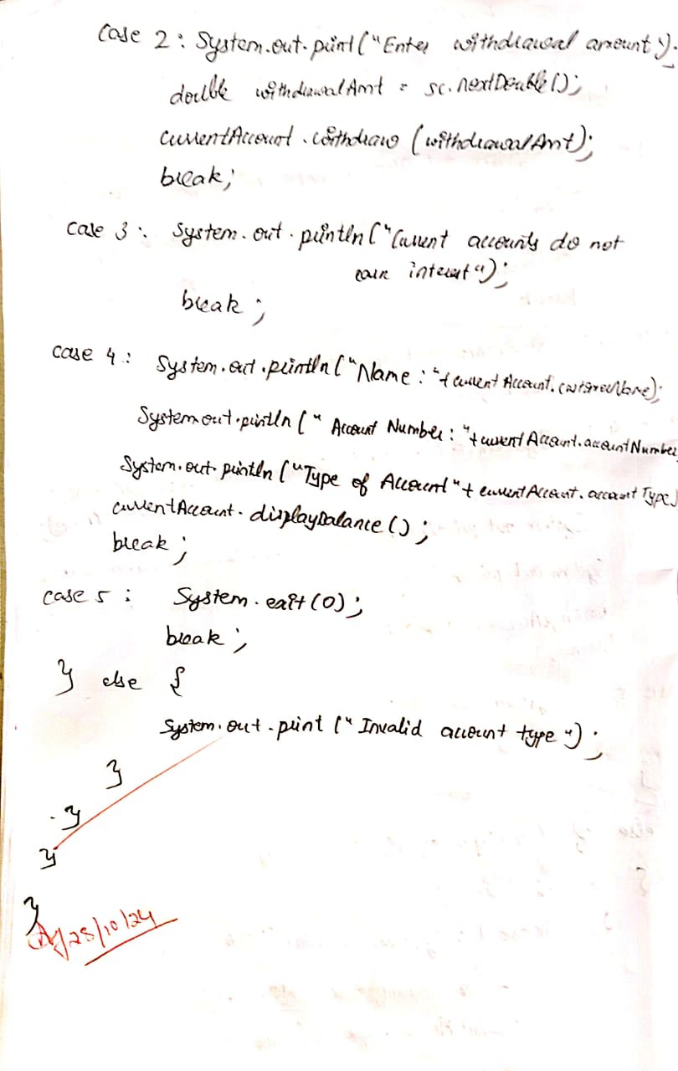 case 2 : System.out.print ("Enter withdrawal amount");
double withdrawalAmt = sc.nextDouble();
currentAccount.withdraw (withdrawalAmt);
break;
case 3 : System.out.println ("Current accounts do not
earn interest");
break ;
case 4 : System.out.println ("Name : "+ currentAccount.customerName);
System.out.println (" Account Number : "+ currentAccount.accountNumber
System.out.println ("Type of Account"+ currentAccount.accountType)
currentAccount.displayBalance () ;
break ;
case 5 : System.exit (0) ;
break ;
} else {
System.out.print (" Invalid account type ") ;
}
}
}
}
28/10/24